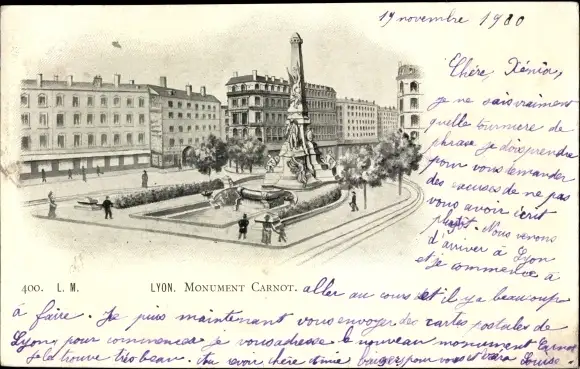 19 novembre 1900
Chère, Xénia,
je ne sais vraiment
quelle tournure de
phrase je dois prendre
pour vous demander
des excuses de ne pas
vous avoir écrit
plutôt. Nous venons
d'arriver à Lyon
et je commence à
400. L. M. LYON. MONUMENT CARNOT. aller au cours et il y a beaucoup
à faire. Je puis maintenant vous envoyer des cartes postales de
Lyon, pour commencer je vous adresse le nouveau monument Carnot
Je le trouve très beau. Au revoir, chère amie baisers pour vous et Louise.